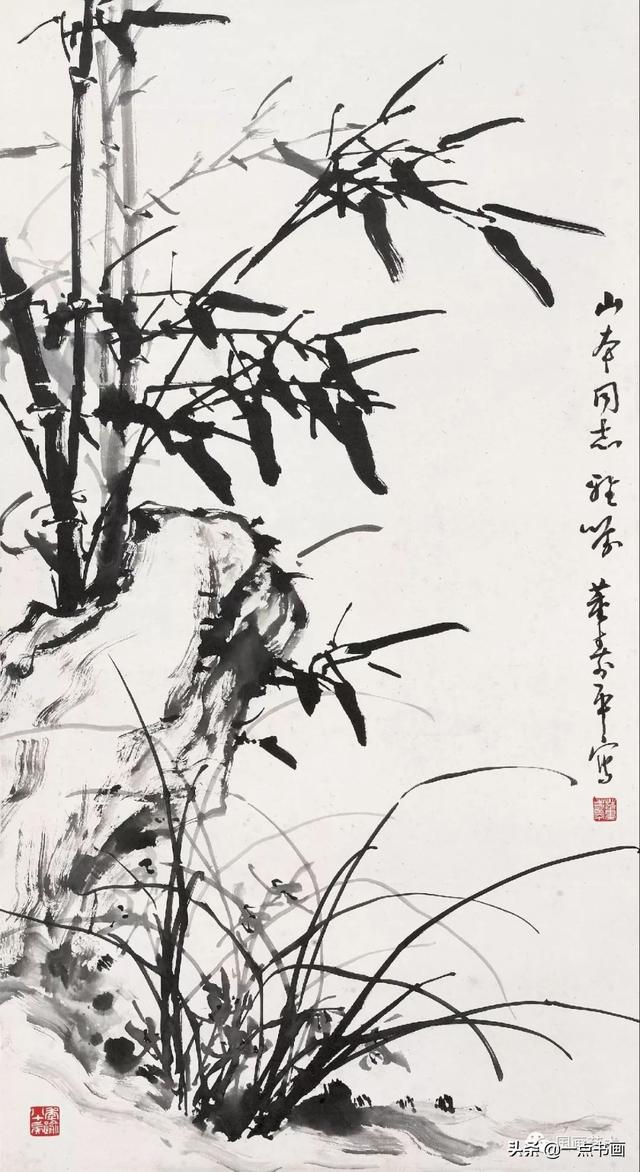 山本同志雅
董寿平写
头条 @一点书画